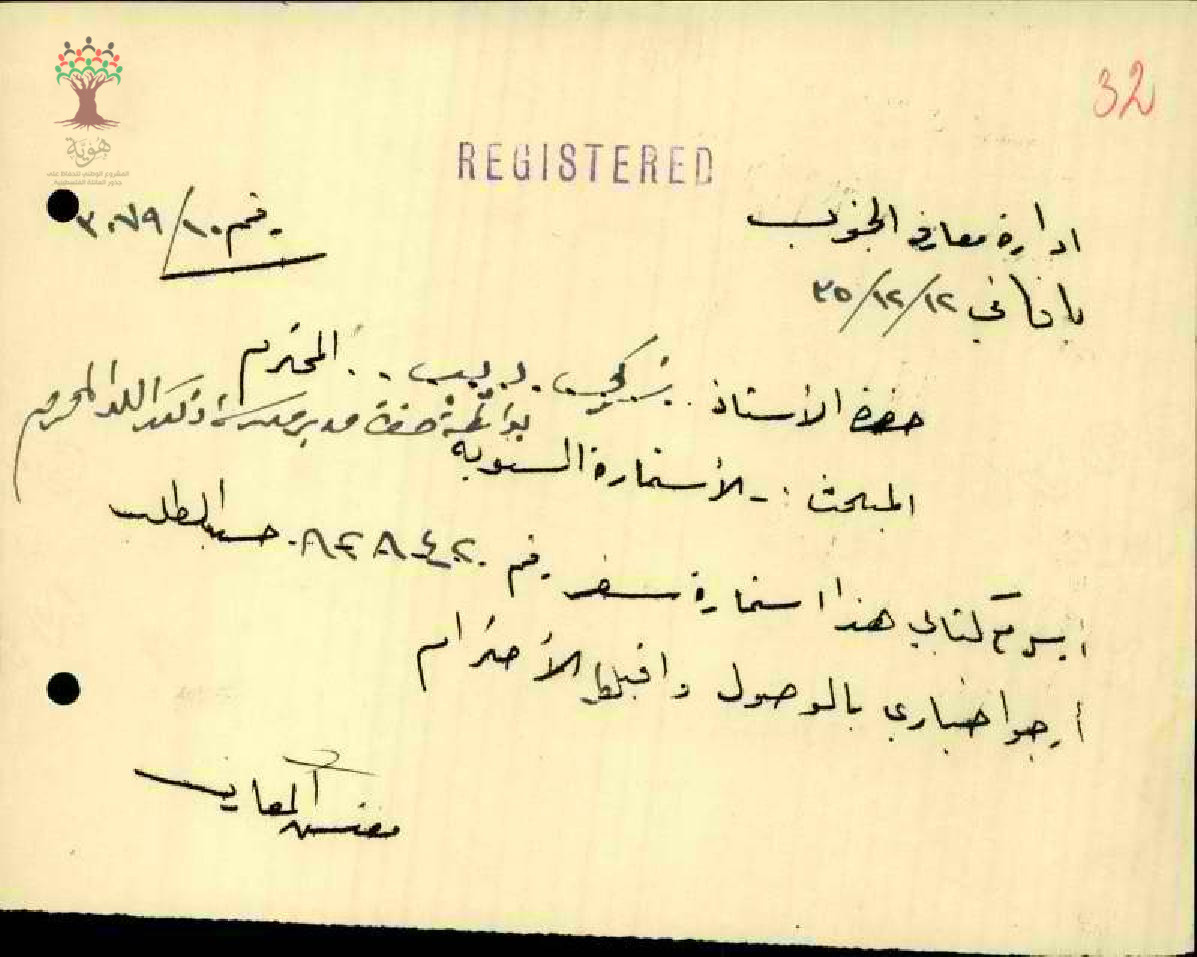 32
هُوِيَّة
المشروع الوطني للحفاظ على
جذور العائلة الفلسطينية
REGISTERED
ادارة معارف الجنوب
رقم ١٠/٣٠٧٩
يافا في ١٢/١٢/٣٥
حضرة الأستاذ شوكي ديب المحترم
بواسطة حضرة مدير مدرسة ذكور اللد المحترم
المبحث :- الأستمارة السنوية
أ يسرع كتابي هذا استمارة سفر رقم ٨٢٨٤٢٠ حسب الطلب
أرجو اخباري بالوصول واقبلوا الأحترام
مفتش المعارف